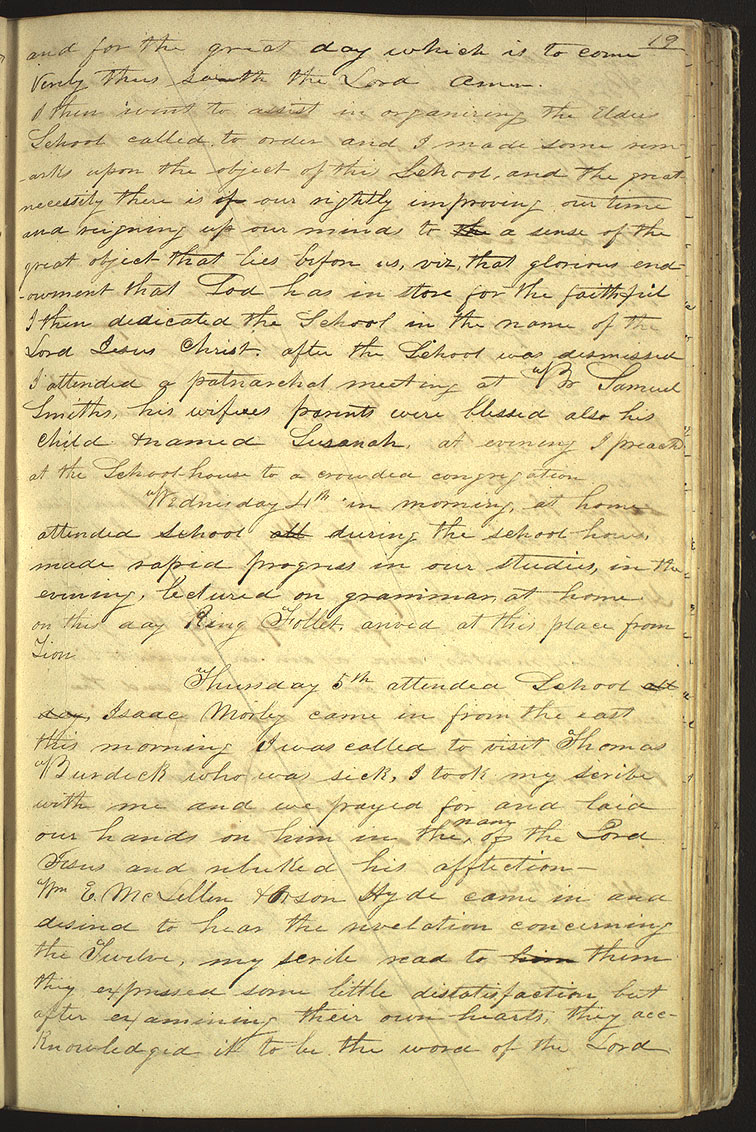 19
and for the great day which is to come
Verily thus saith the Lord Amen.
I then went to assist in organizing the Elders
School called to order and I made some rem-
-arks upon the object of this School, and the great
necessity there is of our rightly improving our time
and reigning up our minds to the a sense of the
great object that lies before us, viz, that glorious end-
-owment that God has in store for the faithful
I then dedicated the School in the name of the
Lord Jesus Christ. after the School was dismissed
I attended a patriarchal meeting at Br Samuel
Smiths, his wifes parents were blessed also his
child & named Susanah, at evening I preachd
at the School-house to a crowded congregation
Wednesday 4th in morning, at home
attended school all during the school hours,
made rapid progress in our studies, in the
evening, lectured on grammar, at home
on this day King Follet, arived at this place from
Zion
Thursday 5th attended School all
day, Isaac Morley came in from the east
this morning I was called to visit Thomas
Burdick who was sick, I took my scribe
with me and we prayed for and laid
our hands on him in the name, of the Lord
Jesus and rebuked his affliction—
Wm E. McLellen & Orson Hyde came in and
desired to hear the revelation concerning
the Twelve, my scribe read to him them
they expressed some little disatisfaction but
after examining their own hearts, they acc-
knowledged it to be the word of the Lord